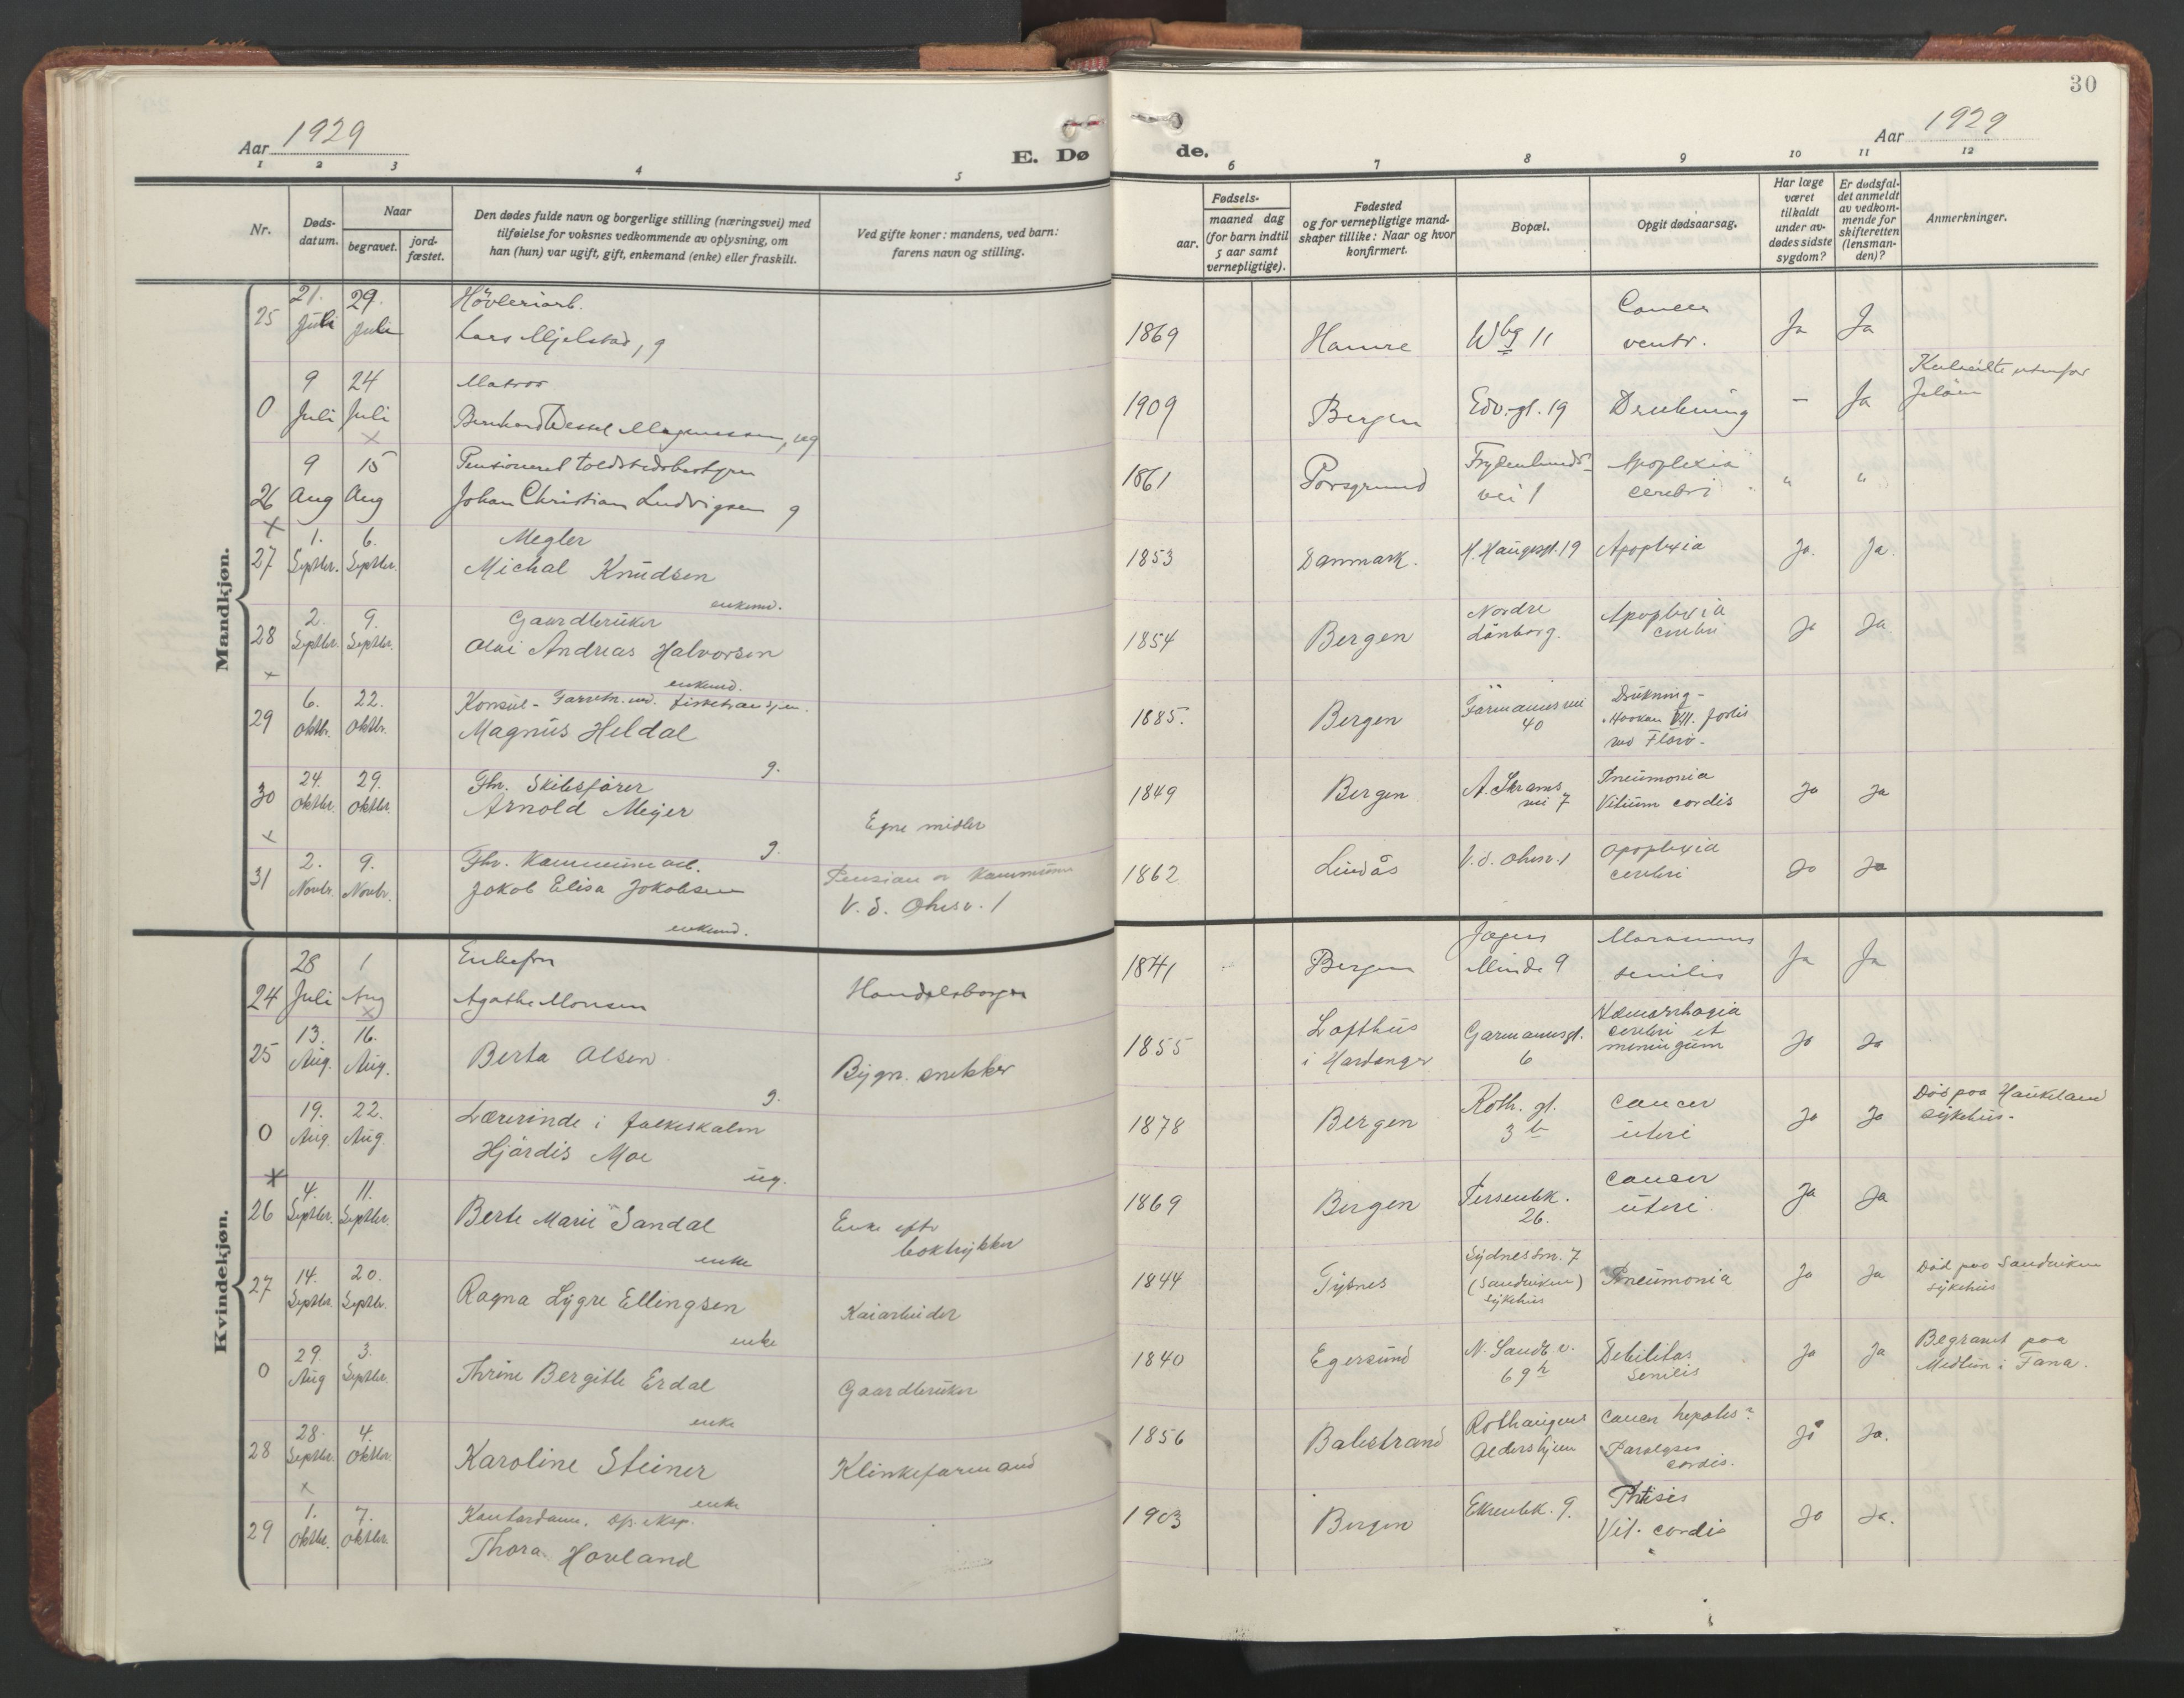 30
Aar 1929
E. Dø de.
Aar 1929
1 2 3 4 5 6 7 8 9 10 11 12
Nr.
Døds-datum.
Naar
begravet.
jord-fæstet.
Den dødes fulde navn og borgerlige stilling (næringsvei) med
tilføielse for voksnes vedkommende av oplysning, om
han (hun) var ugift, gift, enkemand (enke) eller fraskilt.
Ved gifte koner: mandens, ved barn:
farens navn og stilling.
Fødsels-
aar.
maaned dag
(for barn indtil
5 aar samt
vernepligtige).
Fødested
og for vernepligtige mand-
skaper tillike: Naar og hvor
konfirmert.
Bopæl.
Opgit dødsaarsag.
Har læge
været
tilkaldt
under av-
dødes sidste
sygdom?
Er dødsfal-
det anmeldt
av vedkom-
mende for
skifteretten
(lensman-
den)?
Anmerkninger.
Mandkjøn.
25 21. Juli 29. Juli Høvleriarb.
Lars Mjelstad, g 1869 Hamre Wbg 11 Cancer ventr. Ja Ja
0 9 Juli 24 Juli Matros
Bernhard Wessel Magnussen, ug 1909 Bergen Edv.gt. 19 Drukning - Ja utenfor
26 9 Aug 15 Aug Pensioneret toldstedsbestyrer
Johan Christian Ludvigsen g 1861 Porsgrund Frydenlunds-vei 1 Apoplexia cerebri " "
27 1. Septbr. 6. Septbr. Megler
Michal Knudsen
enkemd. 1853 Danmark. H. Haugesgt. 19 Apoplexia Ja. Ja.
28 2. Septbr. 9. Septbr. Gaardbruker
Olai Andreas Halvorsen
enkemd. 1854 Bergen Nordre Lønborg. Apoplexia cerebri Ja Ja
29 6. Oktbr. 22. Oktbr. Konsul - Forretn.md. fiskebransjen.
Magnus Heldal
g. 1885. Bergen Formannsvei 40 Drukning - Haakon VII. forlis ved Florø.
30 24. Oktbr. 29. Oktbr. Fhv. Skibsfører
Arnold Meyer
g. Egne midler 1849 Bergen A. Skrams vei 7 Pneumonia Vitium cordis Ja Ja
31 2. Novbr. 9. Novbr. Fhv. Kommunearb.
Jakob Elisa Jakobsen
enkemd. Pension av Kommunen
V. d. Ohsv. 1 1862 Lindås V. d. Ohsv. 1 Apoplexia cerebri Ja Ja
Kvindekjøn.
24 28 Juli 1 Aug Enkefru
Agathe Monsen Handelsborger 1841 Bergen Jægers Minde 9 Marasmus senilis Ja Ja
25 13. Aug. 16. Aug. Berta Olsen
g. Bygn. snekker 1855 Lofthus i Hardanger Garmannsgt. 6 Hæmorrhagia cerebri et meningum Ja Ja
0 19. Aug. 22. Aug. Lærerinde i folkeskolen
Hjørdis Moe
ug. 1878 Bergen Roth. gt. 3 b Cancer uteri Ja Ja Død paa Haukeland sykehus.
26 4. Septbr. 11. Septbr. Berte Marie Sandal
enke Enke efter
boktrykker 1869 Bergen Persenbk. 26. Cancer uteri Ja Ja
27 14. Septbr. 20. Septbr. Ragna Lygre Ellingsen
enke Kaiarbeider 1844 Tysnes Sydnessm. 7 (Sandviken) sykehus Pneumonia Ja Ja Død paa Sandviken sykehus
0 29 Aug 3. Septbr. Thrine Bergitte Erdal
enke Gaardbruker 1840 Egersund N. Sandb v. 69 h Debilitas senilis Ja Ja Begravet paa Midtun i Fana.
28 28. Septbr. 4. Oktbr. Karoline Steiner
enke Klinkeformand 1856 Balestrand Rothaugens Aldershjem Cancer hepatis? Paralyses cordis. Ja Ja.
29 1. Oktbr. 7. Oktbr. Kontordame. Sp. eksp.
Thora Hovland 1903 Bergen Ekrenbk. 9. Phtisis Vit. cordis Ja Ja.